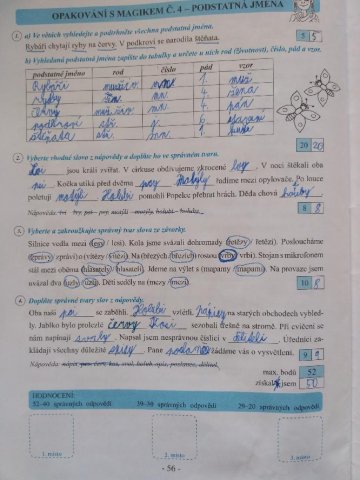 OPAKOVÁNÍ S MAGIKEM Č. 4 – PODSTATNÁ JMÉNA
1. a) Ve větách vyhledejte a podtrhněte všechna podstatná jména.
Rybáři chytají ryby na červy. V podkroví se narodila štěňata. 5 5
b) Vyhledaná podstatná jména zapište do tabulky a určete u nich rod (životnost), číslo, pád a vzor.
podstatné jméno rod číslo pád vzor
Rybáři muž. ž. mn. 1. muž
ryby žen. mn. 4. žena
červy muž. živ. mn. 4. pán
podkroví stř. 6
štěňata stř. mn. 1. kuře
20 20
2. Vyberte vhodné slovo z nápovědy a doplňte ho ve správném tvaru.
Lvi jsou králi zvířat. V cirkuse obdivujeme zkrocené lvy. V noci štěkali oba
psi. Kočka utíká před dvěma psy. Motýly řadíme mezi opylovače. Po louce
poletují motýli. Holubi pomohli Popelce přebrat hrách. Děda chová holuby.
8 8
3. Vyberte a zakroužkujte správný tvar slova ze závorky.
Silnice vedla mezi (lesy / lesi). Kola jsme svázali dohromady (řetězy / řetězi). Posloucháme
(zprávy / zprávi) o (vítězy / vítězi). Na (březých / březích) rostou (vrby / vrbi). Stojan s mikrofonem
stál mezi oběma (hlasately / hlasateli). Jedeme na výlet s (mapamy / mapami). Na provaze jsem
uvázal dva (uzly / uzli). Děti seděly na (mezy / mezi). 10 8
4. Doplňte správné tvary slov z nápovědy.
Oba naši psi se zaběhli. Holubi vzlétli. nápisy na starých obchodech vybled-
ly. Jablko bylo prolezlé červy. Kosi sezobali třešně na stromě. Při cvičení se
nám napínají svaly. Napsal jsem nesprávnou číslici v děliteli. Úředníci za-
kládají všechny důležité spisy. Pane žádáme vás o vysvětlení. 9 9
max. bodů 52
získal/a jsem 50
HODNOCENÍ:
52–40 správných odpovědí 39–30 správných odpovědí 29–20 správných odpovědí
1. místo 2. místo 3. místo
- 56 -